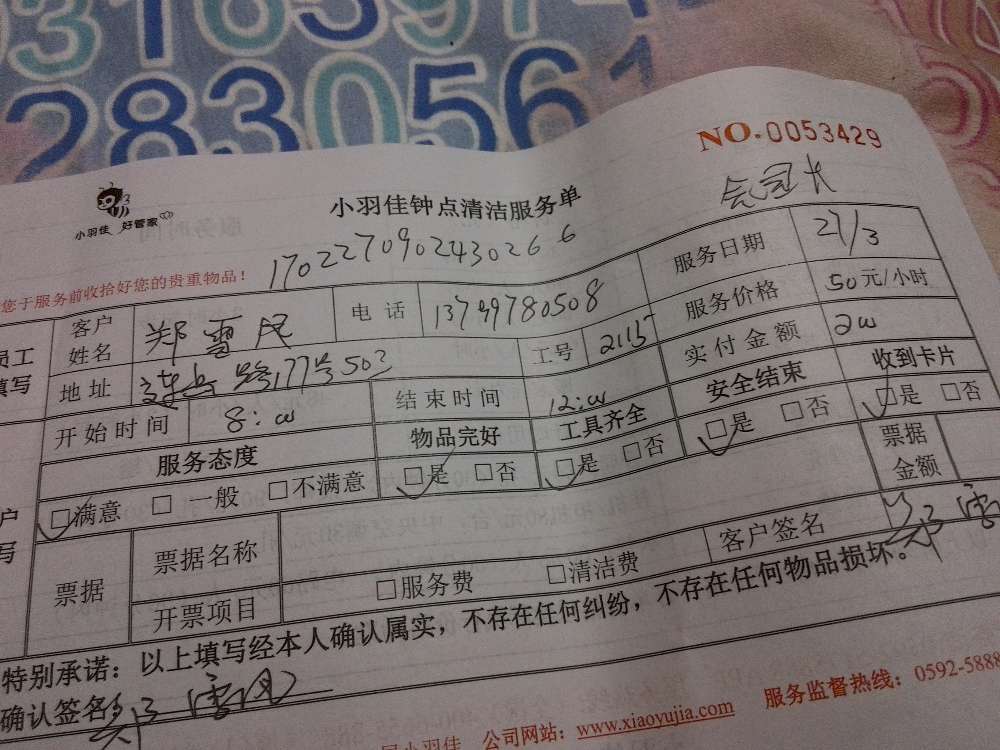 316597
2830561
NO.0053429
小羽佳 好管家
小羽佳钟点清洁服务单
170227090243026 6
您于服务前收拾好您的贵重物品！
员工填写
客户姓名 郑雪民 电话 13799780508 服务日期 27/3
地址 路177号502 工号 2115 服务价格 50元/小时
开始时间 8:00 结束时间 12:00 实付金额 200
服务态度 物品完好 工具齐全 安全结束 收到卡片
□满意 □一般 □不满意 □是 □否 □是 □否 □是 □否 □是 □否
户写
票据 票据名称 客户签名 郑雪 票据金额
开票项目 □服务费 □清洁费
特别承诺：以上填写经本人确认属实，不存在任何纠纷，不存在任何物品损坏。
确认签名 郑雪民
小羽佳 公司网站：www.xiaoyujia.com 服务监督热线：0592-5888